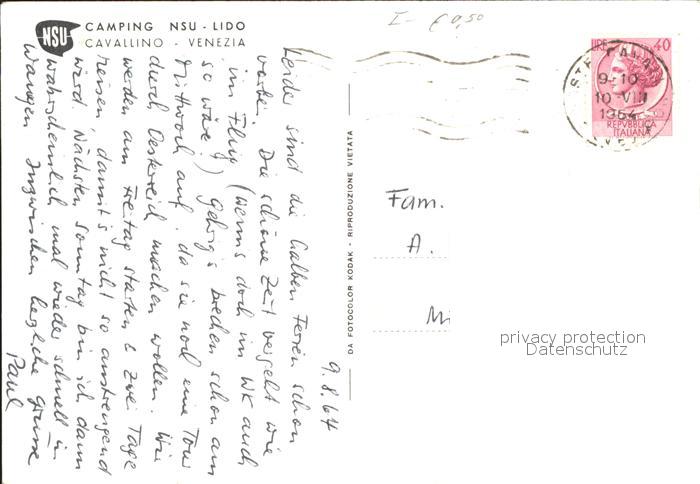 CAMPING NSU - LIDO
CAVALLINO - VENEZIA
NSU
I- € 0,50
LIRE 40
9-10
10-VIII
1964
REPVBBLICA
ITALIANA
9.8.64
Leider sind die halben Ferien schon
vorbei. Die schöne Zeit vergeht wie
im Flug (wenns doch im WK auch
so wäre!) Gehrig's brechen schon am
Mittwoch auf, da sie noch eine Tour
durch Oesterreich machen wollen. Wir
werden am Freitag starten & zwei Tage
reisen, damit's nicht so anstrengend
wird. Nächsten Sonntag bin ich dann
wahrscheinlich mal wieder schnell in
Wangen Inzwischen herzliche Grüsse
Paul
DA FOTOCOLOR KODAK - RIPRODUZIONE VIETATA
Fam.
A.
Mi
privacy protection
Datenschutz